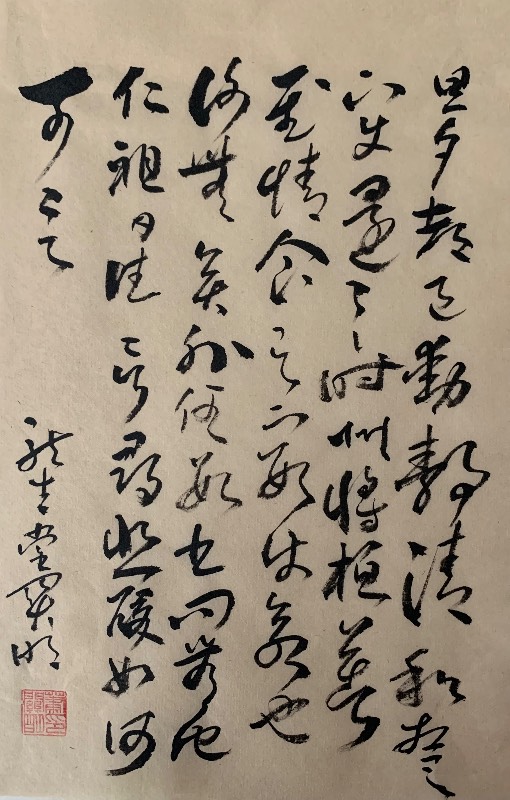 旦夕都邑動靜清和想足
下使還一一時州將桓公告
慰情企足下數使命也
謝無奕外任數書問無他
仁祖日往言尋悲酸如何
可言
堂顯明